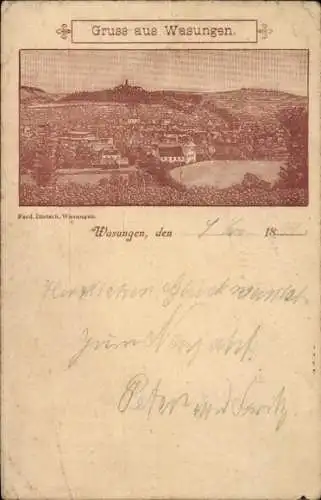 Gruss aus Wasungen.
Ferd. Dietsch, Wasungen.
Wasungen, den 18
Herzlichen Glückwunsch
zum Neujahr
Peter und Fritz